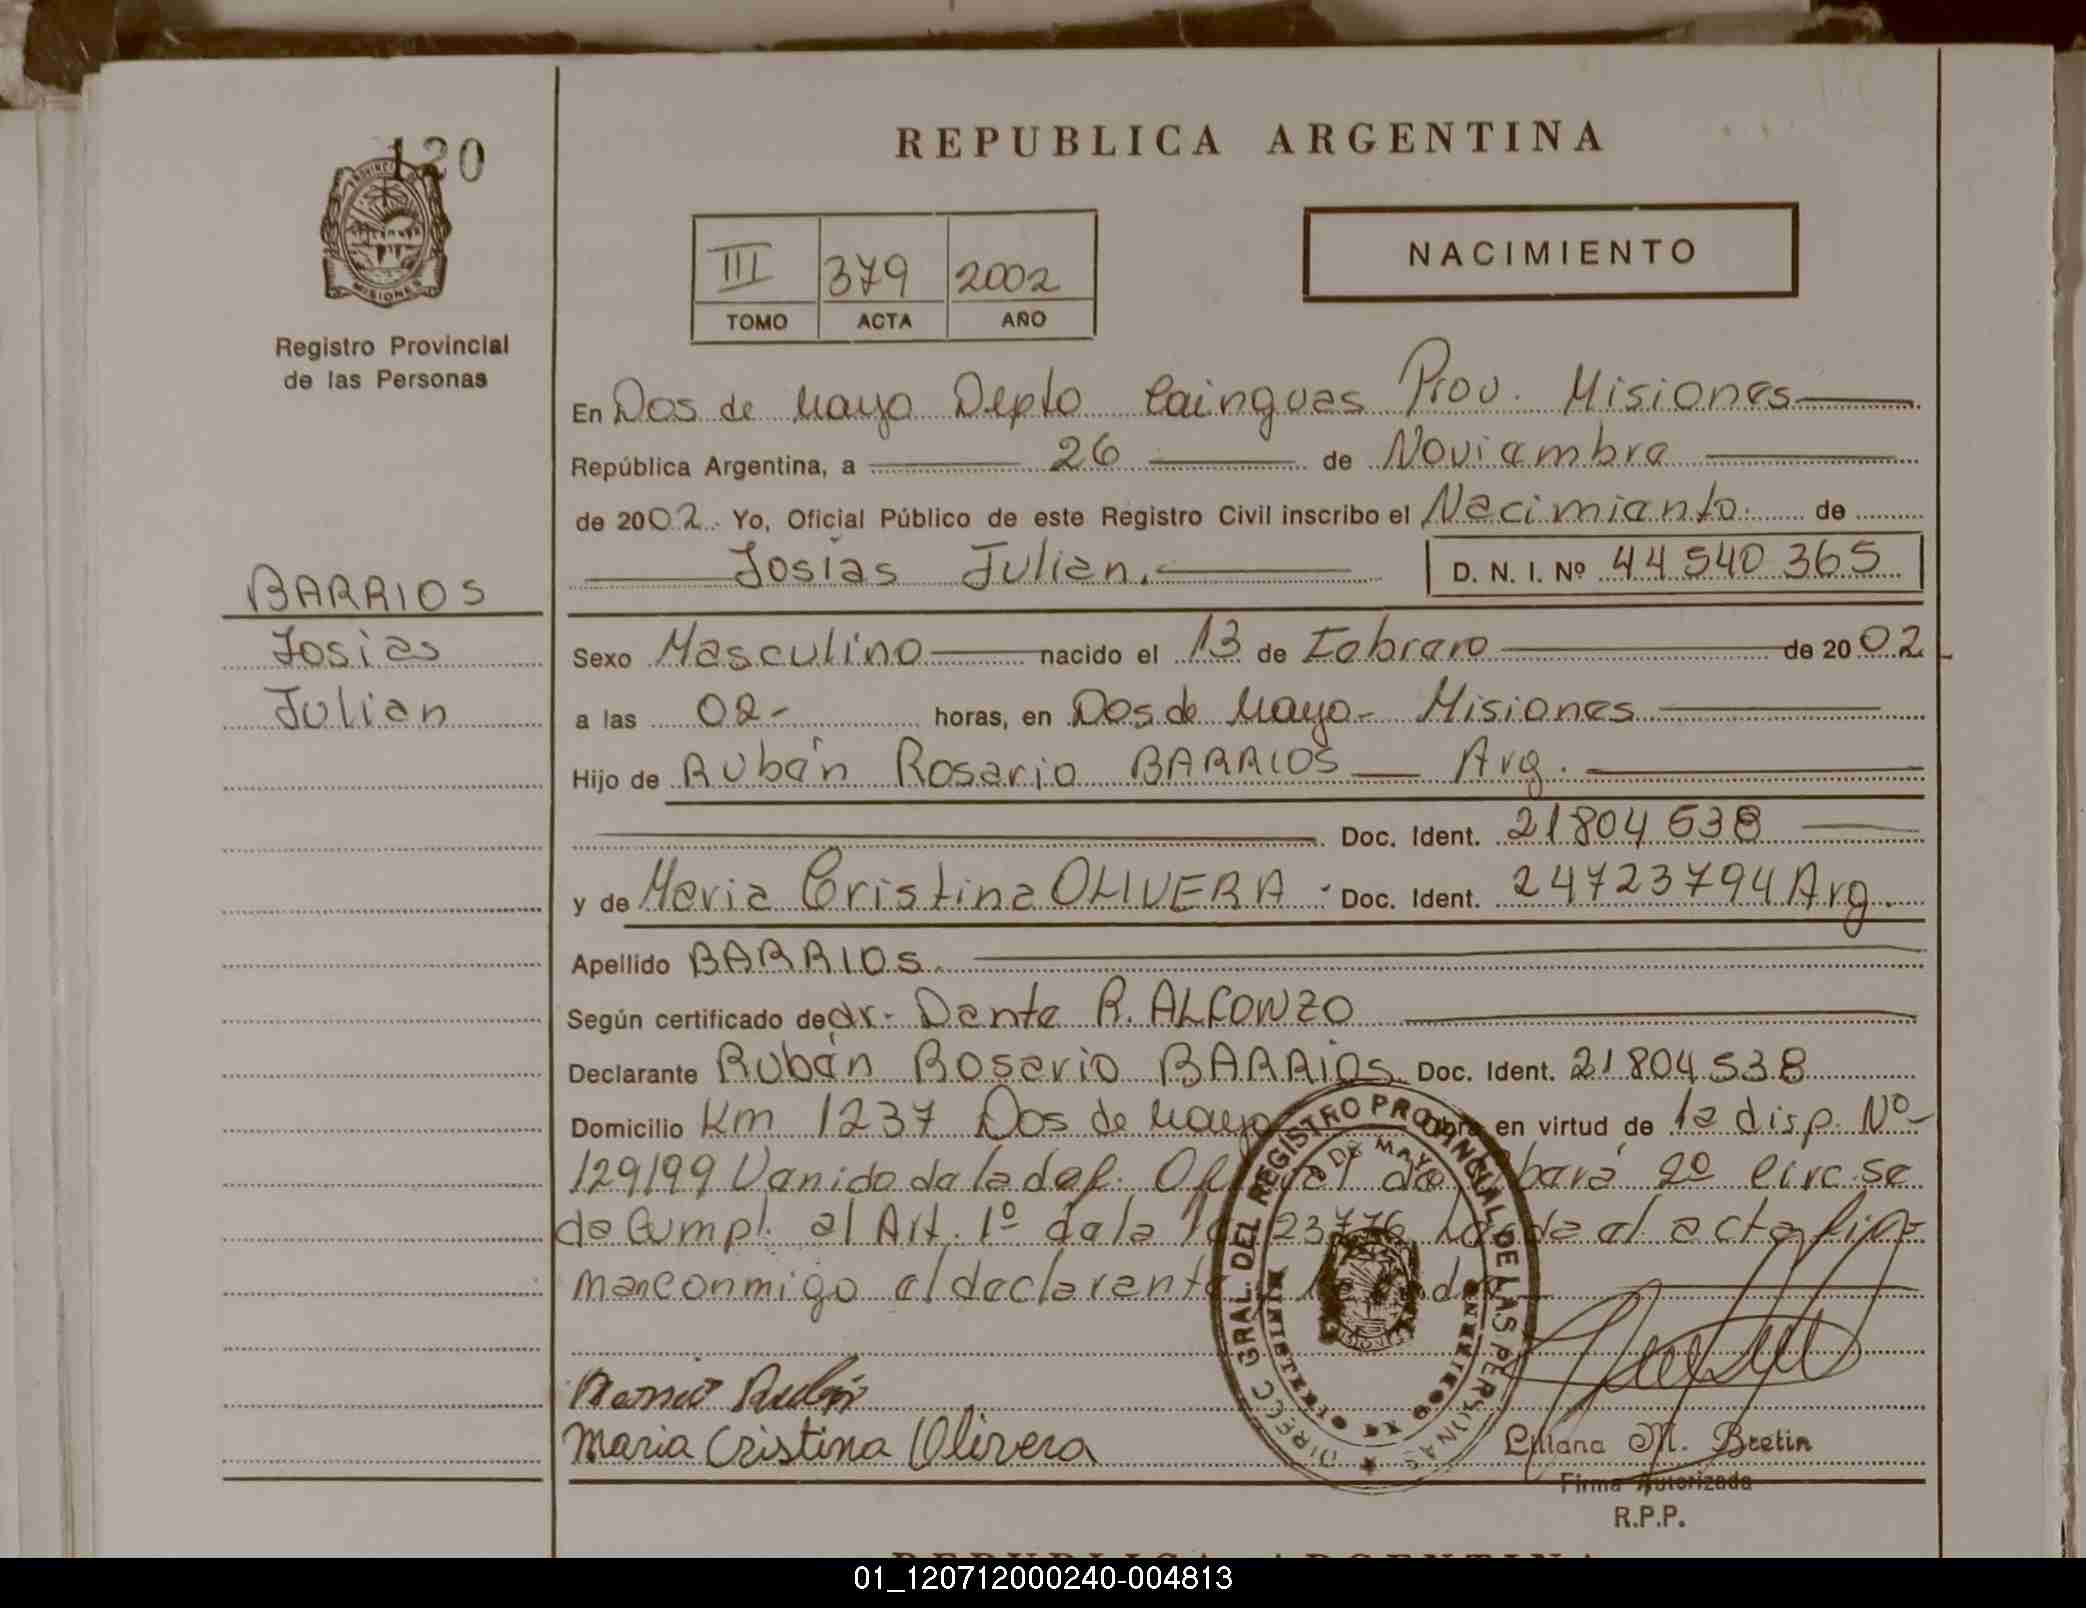 120
REPUBLICA ARGENTINA
PROVINCIA DE MISIONES
III 379 2002
TOMO ACTA AÑO
NACIMIENTO
Registro Provincial
de las Personas
En Dos de Mayo Depto Cainguas Prov. Misiones
República Argentina, a 26 de Noviembre
de 2002. Yo, Oficial Público de este Registro Civil inscribo el Nacimiento de
Josías Julian. D. N. I. Nº 44 540 365
BARRIOS
Josias
Julian
Sexo Masculino nacido el 13 de Febrero de 2002
a las 02- horas, en Dos de Mayo- Misiones
Hijo de Rubén Rosario BARRIOS Arg.
Doc. Ident. 21804 538
y de Maria Cristina OLIVERA - Doc. Ident. 24723794 Arg.
Apellido BARRIOS.
Según certificado de dr. Dante R. ALFONZO
Declarante Rubén Rosario BARRIOS Doc. Ident. 21804538
Domicilio Km 1237 Dos de Mayo Obra en virtud de la disp. Nº-
129/99 Venido de la def. Of. de 2º Circ. se
da Cumpl. al Art. 1º de la 23776. Leída el acta fir-
man conmigo el declarante
Maria Cristina Olivera
DIRECC. GRAL. DEL REGISTRO PROVINCIAL DE LAS PERSONAS
DE MAYO
Liliana M. Bretin
Firma Autorizada
R.P.P.
REPUBLICA ARGENTINA
01_120712000240-004813